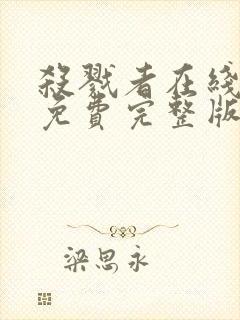 殺戮者在綫
免費完整版
梁思永